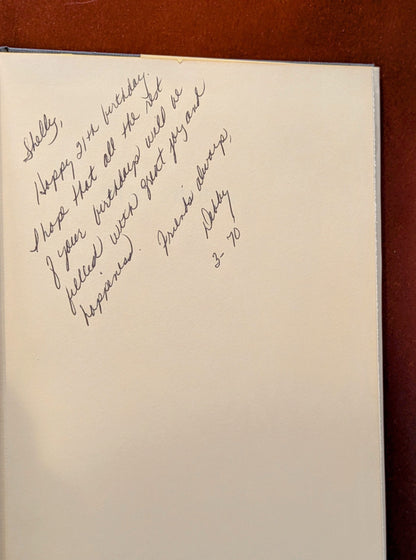 Shelly,
Happy 21th birthday.
I hope that all the rest
of your birthdays will be
filled with great joy and
happiness.
Friends always,
Debby
3-70